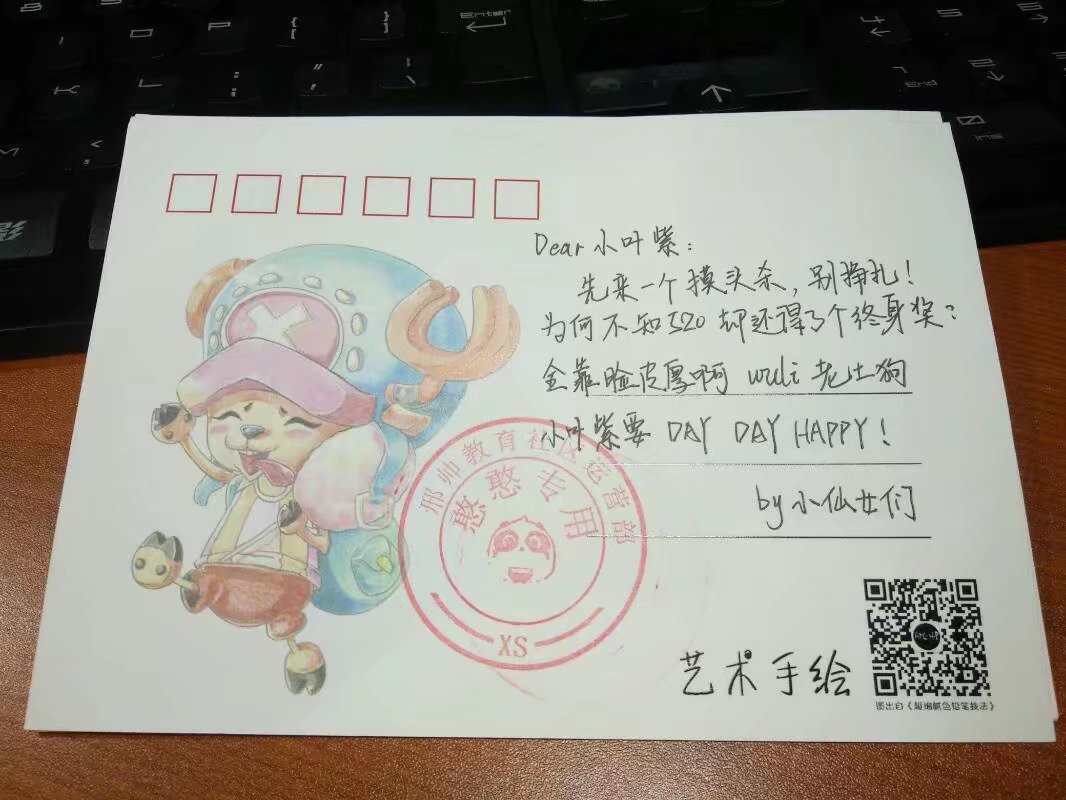 Dear 小叶紫：
先来一个摸头杀，别挣扎！
为何不知520 却还得了个终身奖？
全靠脸皮厚啊 wuli 老土狗
小叶紫要 DAY DAY HAPPY！
by 小仙女们
邢帅教育社区运营部
憨憨专用
XS
艺术手绘
Enter
End